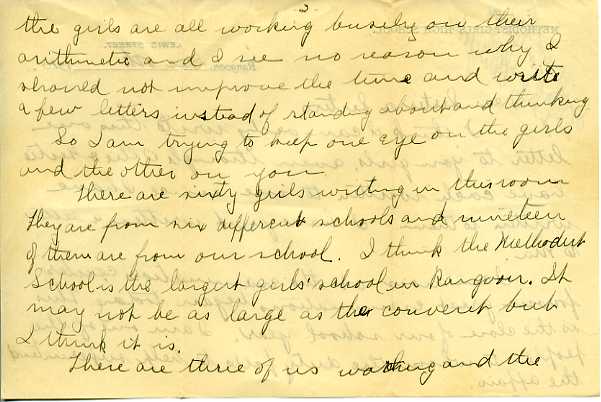 3
the girls are all working busily on their
arithmetic and I see no reason why I
should not improve the time and write
a few letters instead of standing about and thinking
So I am trying to keep one eye on the girls
and the other on you
There are sixty girls writing in this room
They are from six different schools and nineteen
of them are from our school. I think the Methodist
School is the largest girls' school in Rangoon. It
may not be as large as the convent but
I think it is.
There are three of us watching and the